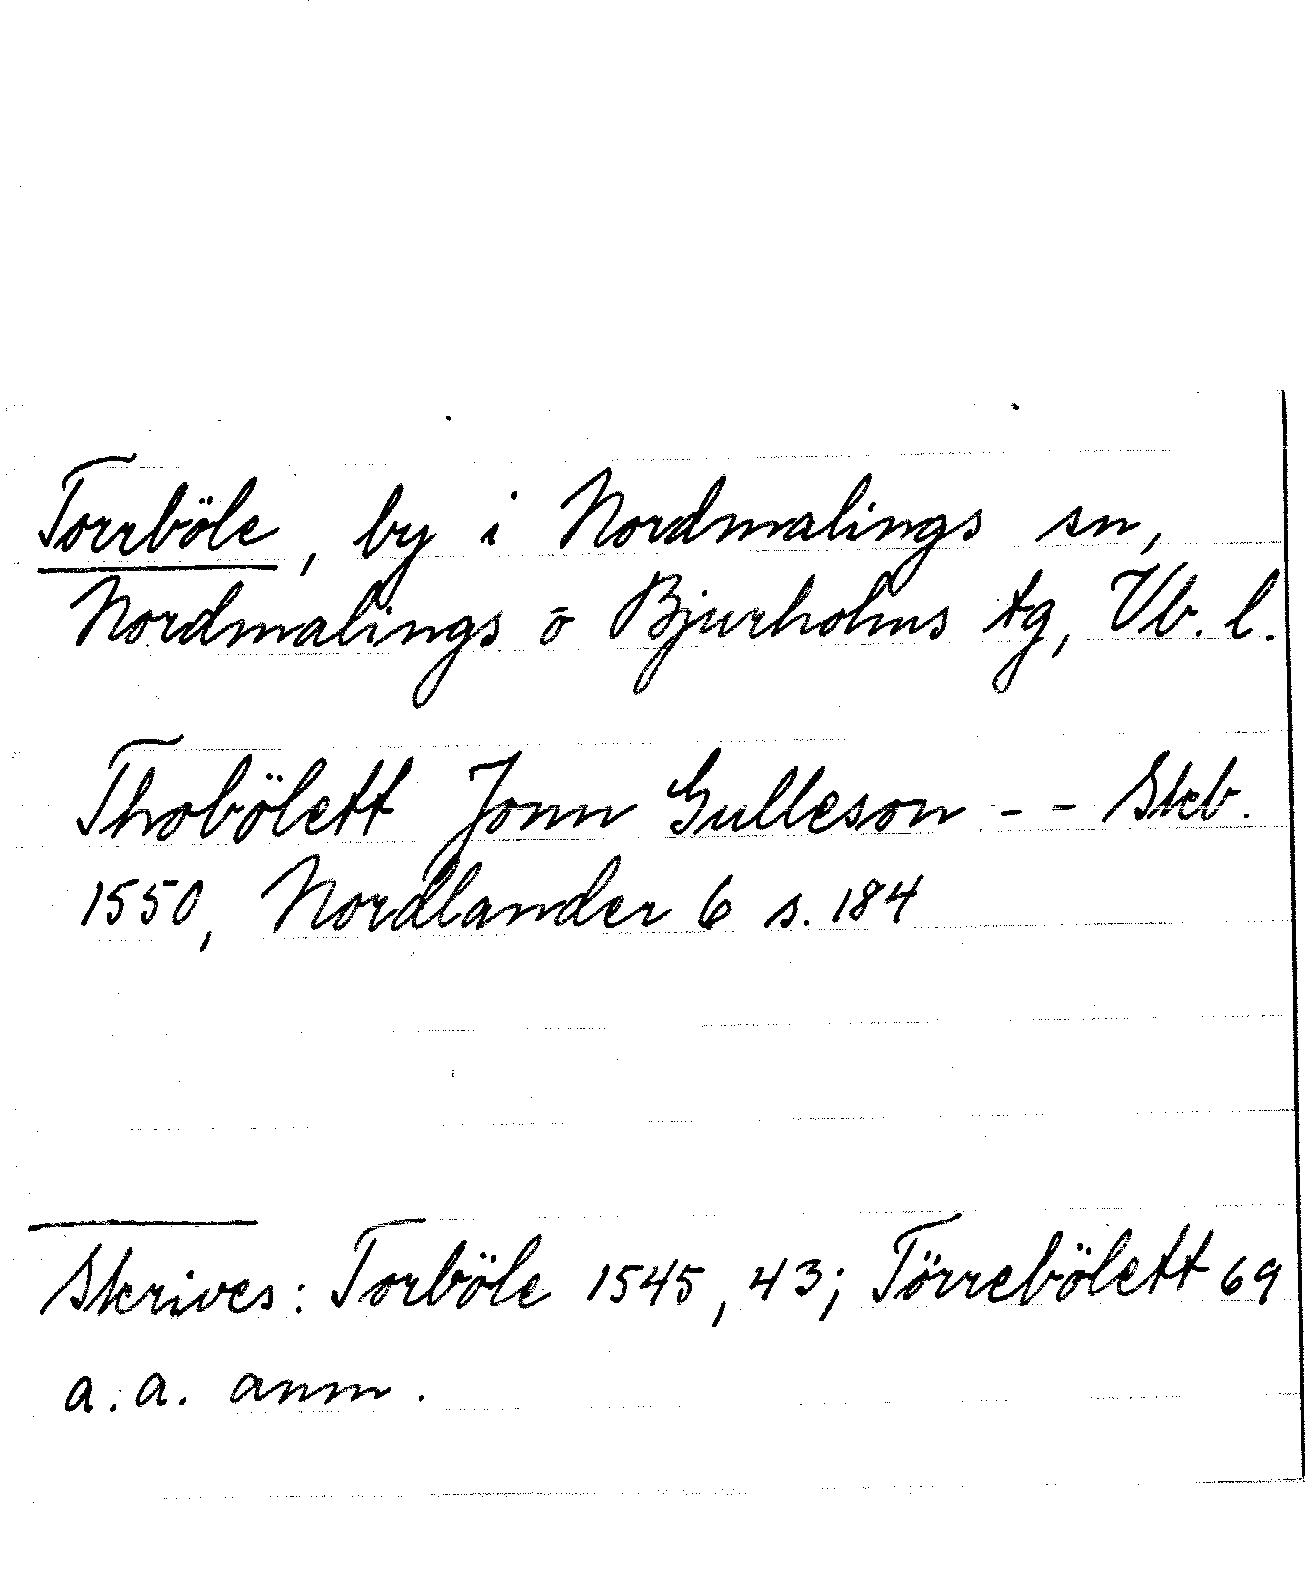 Torrböle, by i Nordmalings sn,
Nordmalings o Bjurholms tg, Vb. l.
Thobölett Jonn Gulleson - - Skb.
1550, Nordlander 6 s. 184
Skrives: Torböle 1545, 43; Törrebölett 69
a. a. anm.